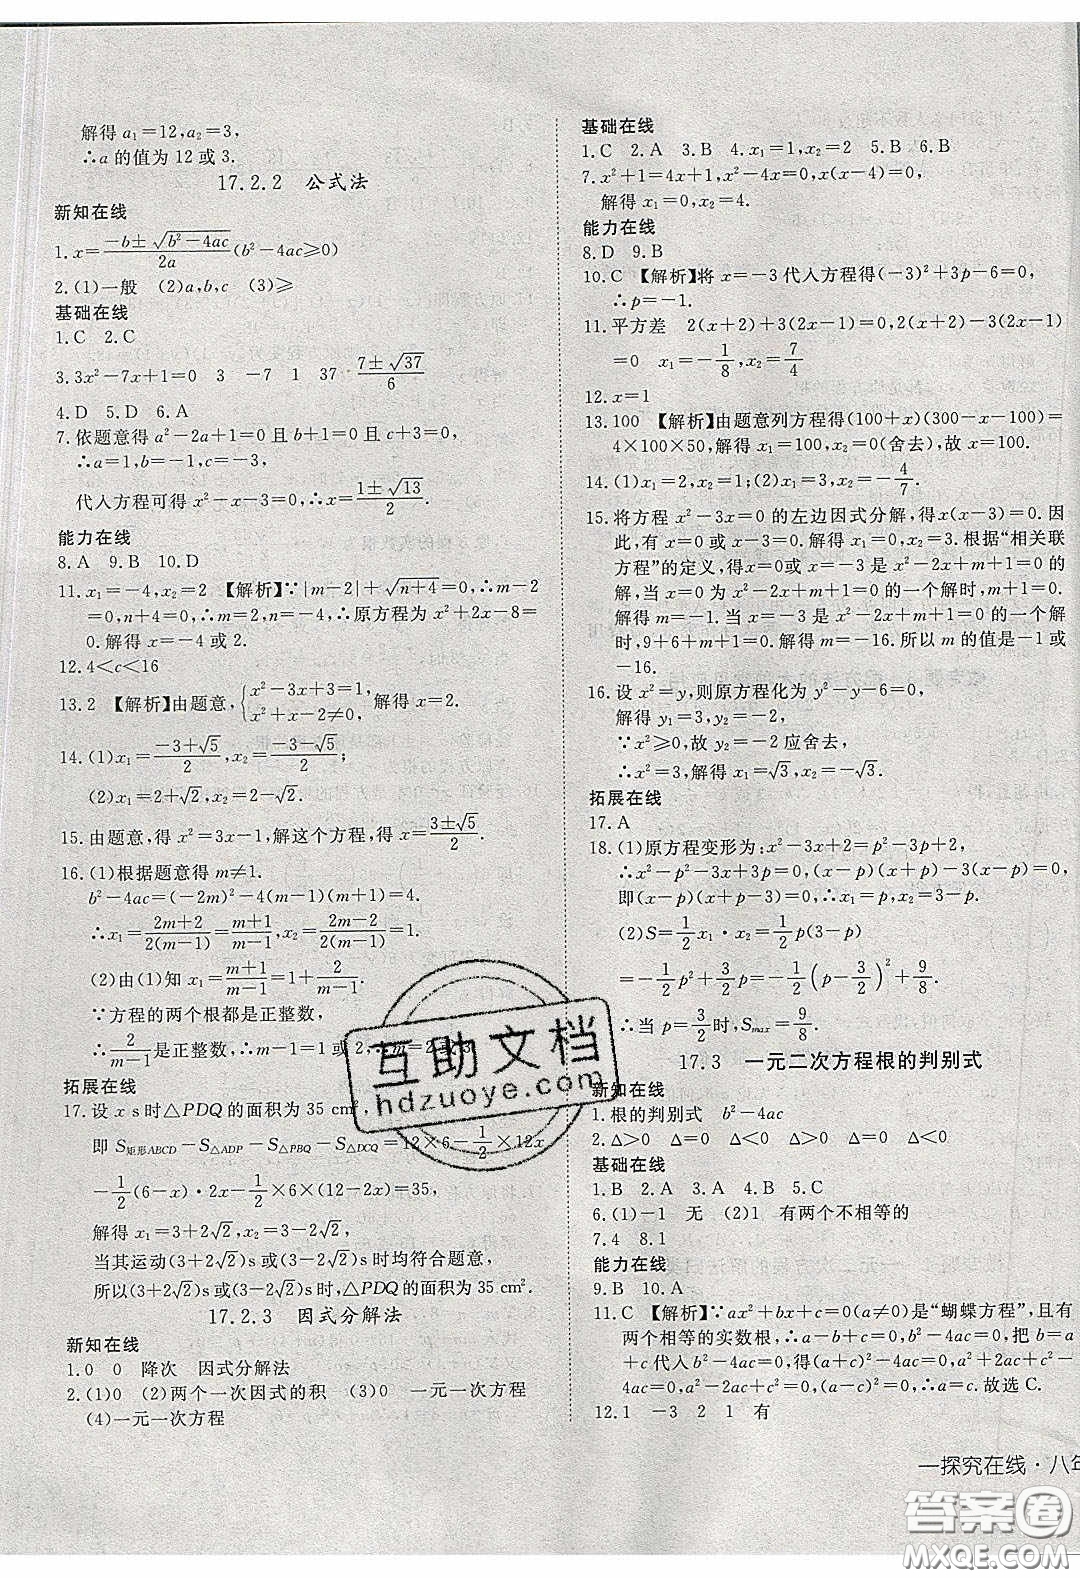 解得 a₁=12,a₂=3,
∴a 的值为 12 或 3.
17.2.2 公式法
新知在线
1.x=(-b±√(b²-4ac))/2a(b²-4ac≥0)
2.(1)一般 (2)a,b,c (3)≥
基础在线
1.C 2.C
3.3x²-7x+1=0 3 -7 1 37 (7±√37)/6
4.D 5.D 6.A
7.依题意得 a²-2a+1=0 且 b+1=0 且 c+3=0,
∴a=1,b=-1,c=-3,
代入方程可得 x²-x-3=0,∴x=(1±√13)/2.
能力在线
8.A 9.B 10.D
11.x₁=-4,x₂=2 【解析】∵|m-2|+√(n+4)=0,∴m-2
=0,n+4=0,∴m=2,n=-4,∴原方程为 x²+2x-8=
0.解得 x=-4 或 2.
12.4<c<16
13.2 【解析】由题意,{x²-3x+3=1, x²+x-2≠0, 解得 x=2.
14.(1)x₁=(-3+√5)/2,x₂=(-3-√5)/2;
(2)x₁=2+√2,x₂=2-√2.
15.由题意,得 x²=3x-1,解这个方程,得 x=(3±√5)/2.
16.(1)根据题意得 m≠1.
b²-4ac=(-2m)²-4(m-1)(m+1)=4.
∴x₁=(2m+2)/2(m-1)=(m+1)/(m-1),x₂=(2m-2)/2(m-1)=1.
(2)由(1)知 x₁=(m+1)/(m-1)=1+2/(m-1).
∵方程的两个根都是正整数,
∴2/(m-1)是正整数,∴m-1=1 或 2,∴m=2 或 3.
拓展在线
17.设 x s 时△PDQ 的面积为 35 cm²,
即 S矩形ABCD-S△ADP-S△PBQ-S△DCQ=12×6-1/2×12x
-1/2(6-x)·2x-1/2×6×(12-2x)=35,
解得 x₁=3+2√2,x₂=3-2√2.
当其运动(3+2√2)s 或(3-2√2)s 时均符合题意,
所以(3+2√2)s 或(3-2√2)s 时,△PDQ 的面积为 35 cm².
17.2.3 因式分解法
新知在线
1.0 0 降次 因式分解法
2.(1)0 (2)两个一次因式的积 (3)0 一元一次方程
(4)一元一次方程
基础在线
1.C 2.A 3.B 4.x₁=1,x₂=2 5.B 6.B
7.x²+1=4x+1,x²-4x=0,x(x-4)=0,
解得 x₁=0,x₂=4.
能力在线
8.D 9.B
10.C 【解析】将 x=-3 代入方程得(-3)²+3p-6=0,
∴p=-1.
11.平方差 2(x+2)+3(2x-1)=0,2(x+2)-3(2x-1)
=0 x₁=-1/8,x₂=7/4
12.x=1
13.100 【解析】由题意列方程得(100+x)(300-x-100)=
4×100×50,解得 x₁=100,x₂=0(舍去),故 x=100.
14.(1)x₁=2,x₂=1;(2)x₁=3,x₂=-4/7.
15.将方程 x²-3x=0 的左边因式分解,得x(x-3)=0.因
此,有 x=0 或 x-3=0.解得 x=0 或 x=3.根据“相关联
方程”的定义,得 x=0或 x=-3 是 x²-2x+m+1=0 的
解,当 x=0 为 x²-2x+m+1=0 的一个解时,m+1=0.
解得 m=-1.当 x=-3 是 x²-2x+m+1=0 的一个解
时,9+6+m+1=0.解得 m=-16.所以 m 的值是-1 或
-16.
16.设 x²=y,则原方程化为 y²-y-6=0,
解得 y₁=3,y₂=-2,
∵x²≥0,故 y=-2 应舍去,
∴x²=3,解得 x₁=√3,x₂=-√3.
拓展在线
17.A
18.(1)原方程变形为:x²-3x+2=p²-3p+2,
∴x²-p²-3x+3p=0,(x+p)(x-p)-3(x-p)=0,
即(x-p)(x+p-3)=0,∴x₁=p,x₂=3-p.
(2)S=1/2x₁·x₂=1/2p(3-p)
=-1/2p²+3/2p=-1/2(p-3/2)²+9/8.
∴当 p=3/2时,Smax=9/8.
17.3 一元二次方程根的判别式
新知在线
1.根的判别式 b²-4ac
2.Δ>0 Δ=0 Δ<0 Δ>0 Δ=0 Δ<0
基础在线
1.B 2.A 3.A 4.B 5.C
6.(1)-1 无 (2)1 有两个不相等的
7.4 8.1
能力在线
9.B 10.A
11.C 【解析】∵ax²+bx+c=0(a≠0)是“蝴蝶方程”,且有
两个相等的实数根,∴a+c=b,b²-4ac=0,把 b=a
+c代入 b²-4ac=0,得(a+c)²-4ac=0,a²+2ac+
c²-4ac=0,a²-2ac+c²=(a-c)²=0,∴a=c.故选 C.
12.1 -3 2 1 有
一探究在线·八年
互助文档
hdzuoye.com
答案圈
MXQE.COM